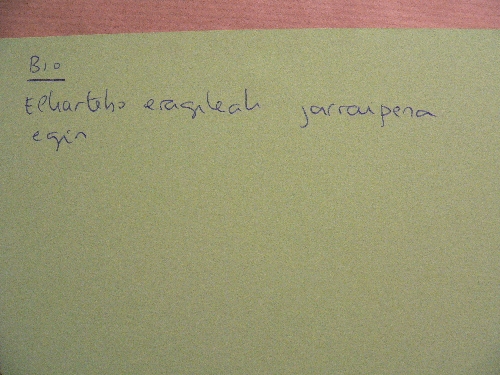 Bio
Elkarteko eragileak jarraipena
egin